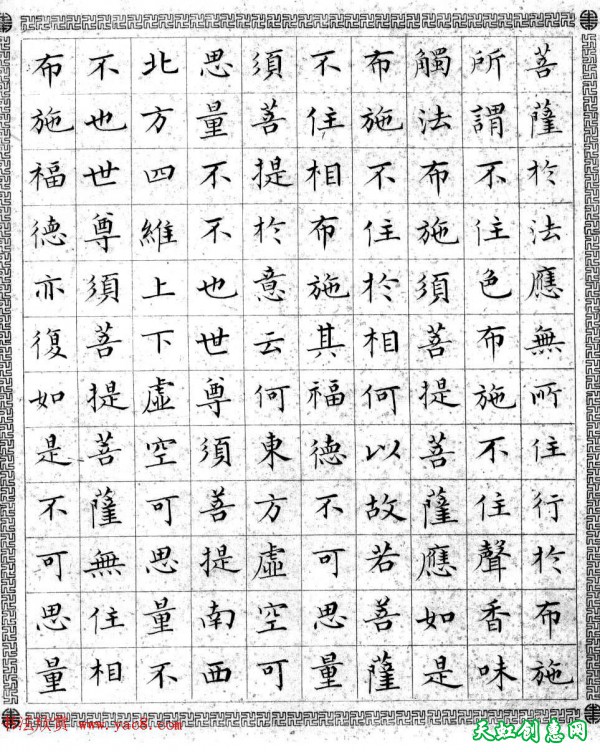 菩薩於法應無所住行於布施
所謂不住色布施不住聲香味
觸法布施須菩提菩薩應如是
布施不住於相何以故若菩薩
不住相布施其福德不可思量
須菩提於意云何東方虛空可
思量不不也世尊須菩提南西
北方四維上下虛空可思量不
不也世尊須菩提菩薩無住相
布施福德亦復如是不可思量
书法欣赏 www.yac8.com
天虹创意网